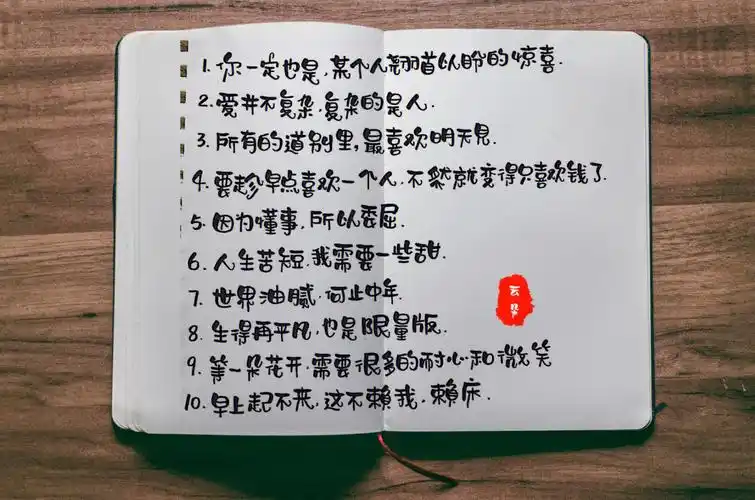 1. 你一定也是,某个人翘首以盼的惊喜.
2. 爱并不复杂,复杂的是人.
3. 所有的道别里,最喜欢明天见.
4. 要趁早点喜欢一个人,不然就变得只喜欢钱了.
5. 因为懂事,所以委屈.
6. 人生苦短,我需要一些甜.
7. 世界油腻,何止中年.
8. 生得再平凡,也是限量版.
9. 等一朵花开,需要很多的耐心和微笑
10. 早上起不来,这不賴我,賴床.
云朵